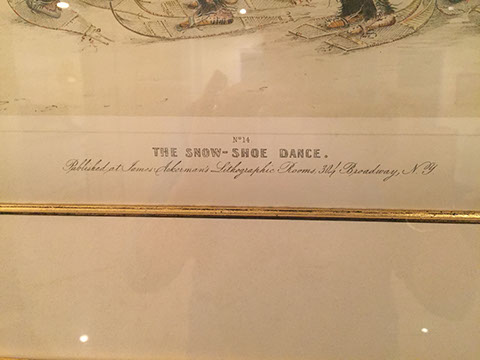 No 14
THE SNOW-SHOE DANCE.
Published at James Ackerman's Lithographic Rooms 304 Broadway, N. Y